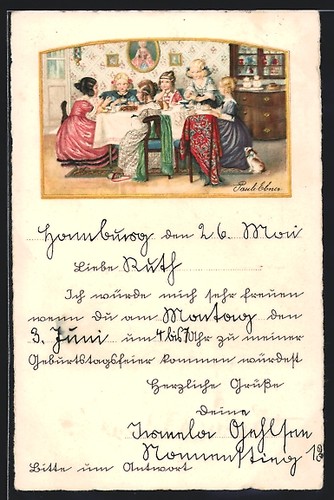 Pauli Ebner
Hamburg den 26. Mai
Liebe Ruth
Ich würde mich sehr freuen
wenn du am Montag den
3. Juni um 4 bis 7 Uhr zu meiner
Geburtstagsfeier kommen würdest
Herzliche Grüße
Deine
Irmela Oehlsen
Nonnenstieg
Bitte um Antwort